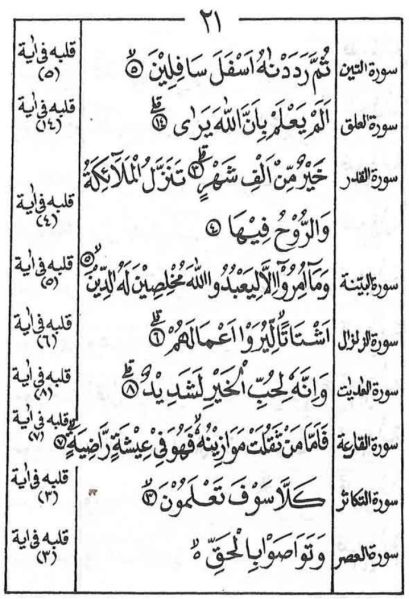 ٢١
سورة التين ثُمَّ رَدَدْنٰهُ اَسْفَلَ سَافِلِيْنَ ۝٥ قلبه فى اية (٥)
سورة العلق اَلَمْ يَعْلَمْ بِاَنَّ اللّٰهَ يَرٰى ۝١٤ قلبه فى اية (١٤)
سورة القدر خَيْرٌ مِّنْ اَلْفِ شَهْرٍ ۝٣ تَنَزَّلُ الْمَلَآئِكَةُ
وَالرُّوْحُ فِيْهَا ۝٤ قلبه فى اية (٤)
سورة البيّنة وَمَآ اُمِرُوْٓا اِلَّا لِيَعْبُدُوا اللّٰهَ مُخْلِصِيْنَ لَهُ الدِّيْنَ ۝٥ قلبه فى اية (٥)
سورة الزلزال اَشْتَاتًا لِّيُرَوْا اَعْمَالَهُمْ ۝٦ قلبه فى اية (٦)
سورة العٰديٰت وَاِنَّهٗ لِحُبِّ الْخَيْرِ لَشَدِيْدٌ ۝٨ قلبه فى اية (٨)
سورة القارعة فَاَمَّا مَنْ ثَقُلَتْ مَوَازِيْنُهٗ فَهُوَ فِيْ عِيْشَةٍ رَّاضِيَةٍ ۝٧ قلبه فى اية (٧)
سورة التكاثر كَلَّا سَوْفَ تَعْلَمُوْنَ ۝٣ قلبه فى اية (٣)
سورة العصر وَتَوَاصَوْا بِالْحَقِّ ۵ قلبه فى اية (٣)